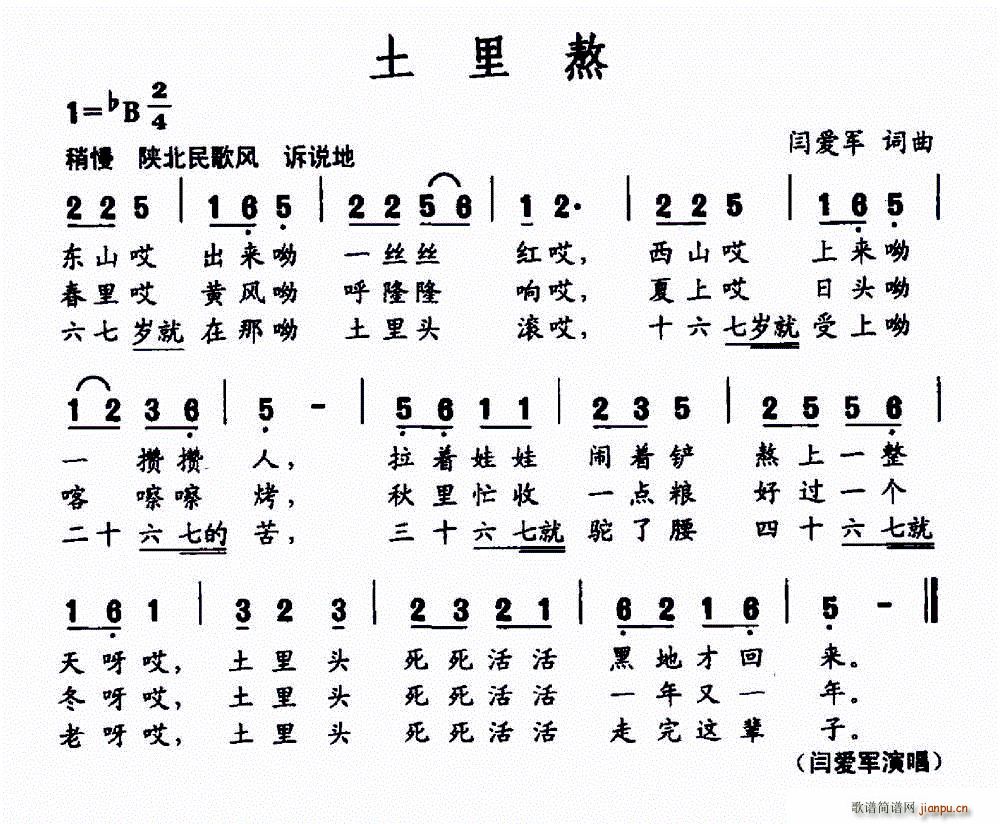 土里熬
1=♭B 2/4
稍慢 陕北民歌风 诉说地
闫爱军 词曲
2 2 5 | 1 6 5 | 2 2 5 6 | 1 2· | 2 2 5 | 1 6 5 |
东山哎 出来呦 一丝丝 红哎, 西山哎 上来呦
春里哎 黄风呦 呼隆隆 响哎, 夏上哎 日头呦
六七岁就在那呦 土里头 滚哎, 十六七岁就受上呦
1 2 3 6 | 5 - | 5 6 1 1 | 2 3 5 | 2 5 5 6 |
一攒攒 人, 拉着娃娃 闹着铲 熬上一整
喀嚓嚓 烤, 秋里忙收 一点粮 好过一个
二十六七的 苦, 三十六七就 驼了腰 四十六七就
1 6 1 | 3 2 3 | 2 3 2 1 | 6 2 1 6 | 5 - ‖
天呀哎, 土里头 死死活活 黑地才回 来。
冬呀哎, 土里头 死死活活 一年又一 年。
老呀哎, 土里头 死死活活 走完这辈 子。
(闫爱军演唱)
歌谱简谱网 jianpu.cn